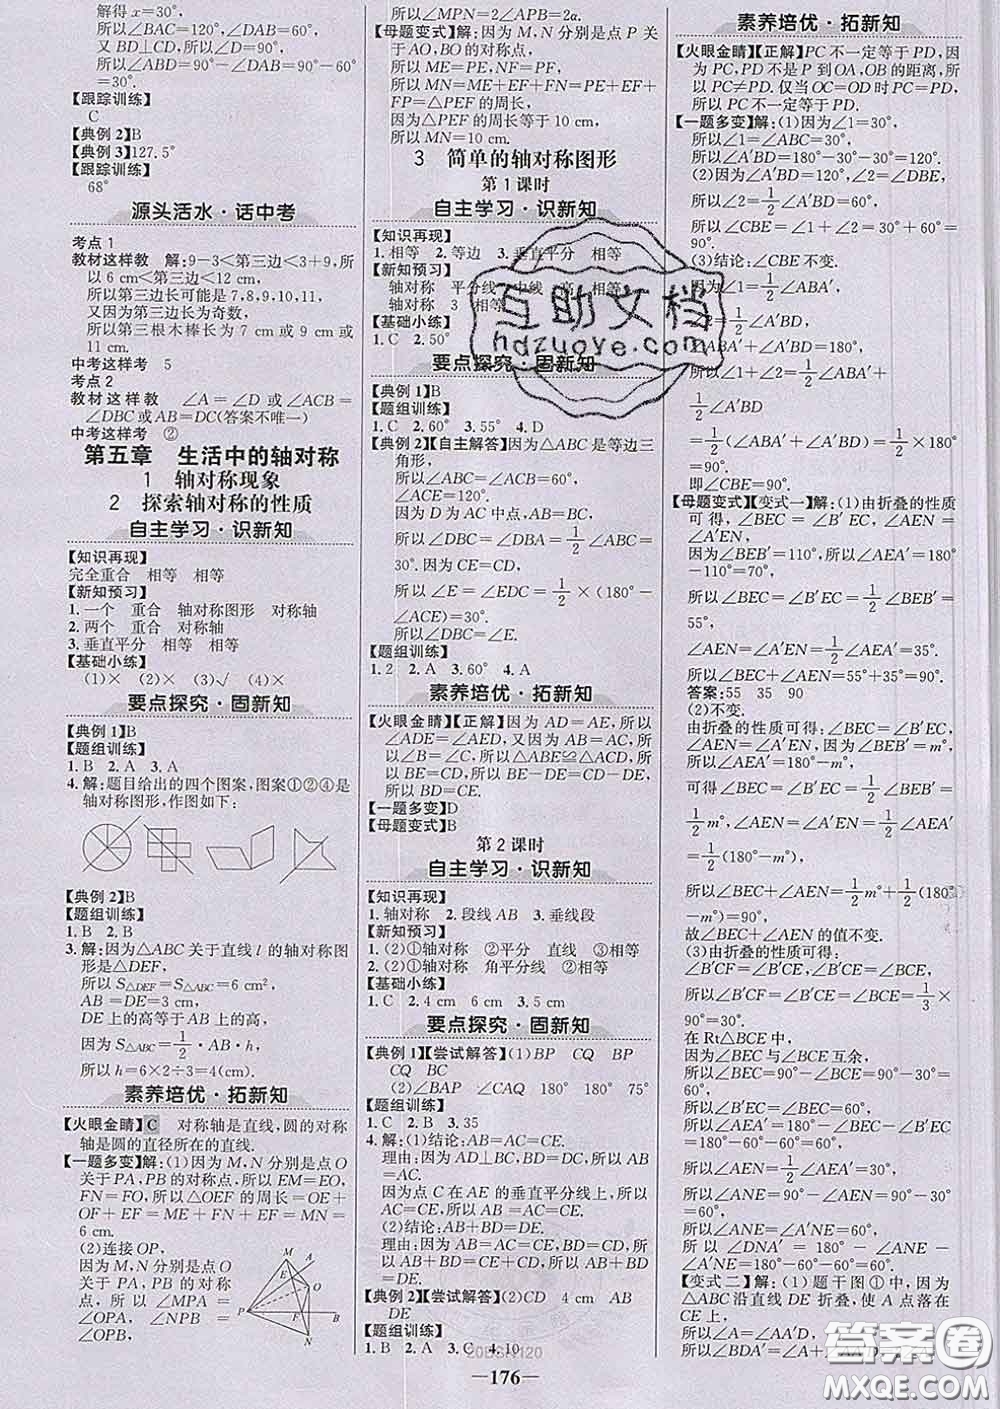 解得 x=30°.
所以∠BAC=120°,
又 BD⊥CD,所以∠D=90°,
所以∠ABD=90°-∠BAD=90°-60°
=30°.
【跟踪训练】
C
【典例 2】B
【典例 3】127.5°
【跟踪训练】
68°
源头活水·话中考
考点 1
教材这样教 解:9-3<第三边长<3+9,所
以 6 cm<第三边长<12 cm,
所以第三边长可能是 7,8,9,10,11,
又因为第三边长为奇数,
所以第三根木棒长为 7 cm 或 9 cm 或
11 cm.
中考这样考 5
考点 2
教材这样教 ∠A=∠D 或 ∠ACB=
∠DBC 或 AB=DC(答案不唯一)
中考这样考 ②
第五章 生活中的轴对称
1 轴对称现象
2 探索轴对称的性质
自主学习·识新知
【知识再现】
完全重合 相等 相等
【新知预习】
1.一个 重合 轴对称图形 对称轴
2.两个 重合 对称轴
3.垂直平分 相等 相等
【基础小练】
(1)× (2)× (3)√ (4)×
要点探究·固新知
【典例 1】B
【题组训练】
1.B 2.A 3.A
4.解:题目给出的四个图案,图案①②④是
轴对称图形,作图如下:
【典例 2】B
【题组训练】
1.B 2.B
3.解:因为△ABC 关于直线 l 的轴对称图
形是△DEF,
所以 S△DEF=S△ABC=6 cm²,
AB=DE=3 cm,
DE 上的高等于 AB 上的高,
因为 S△ABC=1/2·AB·h,
所以 h=6×2÷3=4(cm).
素养培优·拓新知
【火眼金睛】C 对称轴是直线,圆的对称
轴是圆的直径所在的直线.
【一题多变】解:(1)因为 M,N 分别是点 O
关于 PA,PB 的对称点,所以 EM=EO,
FN=FO,所以△OEF 的周长=OE+
OF+EF=ME+FN+EF=MN=
6 cm.
(2)连接 OP,
因为 M,N 分别是点 O
关于 PA,PB 的对称
点,所以∠MPA=
∠OPA,∠NPB=
∠OPB,
M
A
O
E
P
F
B
N
所以∠MPN=2∠APB=2α.
【母题变式】解:因为 M,N 分别是点 P 关
于 AO,BO 的对称点,
所以 ME=PE,NF=PF,
所以 MN=ME+EF+FN=PE+EF+
PF=△PEF 的周长,
因为△PEF 的周长等于 10 cm,
所以 MN=10 cm.
3 简单的轴对称图形
第 1 课时
自主学习·识新知
【知识再现】
1.相等 2.等边 3.垂直平分 相等
【新知预习】
轴对称 平分线 中线 高 相等
轴对称 3 相等
【基础小练】
1.C 2.50°
要点探究·固新知
【典例 1】B
【题组训练】
1.C 2.60° 3.55° 4.D
【典例 2】【自主解答】因为△ABC 是等边三
角形,
所以∠ABC=∠ACB=60°,
∠ACE=120°.
因为 D 为 AC 中点,AB=BC,
所以∠DBC=∠DBA=1/2∠ABC=
30°.因为 CE=CD,
所以∠E=∠EDC=1/2×(180°-
∠ACE)=30°.
所以∠DBC=∠E.
【题组训练】
1.2 2.A 3.60° 4.A
素养培优·拓新知
【火眼金睛】【正解】因为 AD=AE,所以
∠ADE=∠AED,又因为 AB=AC,所
以∠B=∠C,所以△ABE≌△ACD,所
以 BE=CD,所以 BE-DE=CD-DE,
所以 BD=CE.
【一题多变】D
【母题变式】B
第 2 课时
自主学习·识新知
【知识再现】
1.轴对称 2.段线 AB 3.垂线段
【新知预习】
1.(2)①轴对称 ②平分 直线 ③相等
2.(2)①轴对称 角平分线 ②相等
【基础小练】
1.C 2.4 cm 6 cm 3.5 cm
要点探究·固新知
【典例 1】【尝试解答】(1)BP CQ BP
CQ BC
(2)∠BAP ∠CAQ 180° 180° 75°
【题组训练】
1.C 2.B 3.35
4.解:(1)结论:AB=AC=CE.
理由:因为 AD⊥BC,BD=DC,所以 AB
=AC,
因为点 C 在 AE 的垂直平分线上,所以
AC=CE,所以 AB=AC=CE.
(2)结论:AB+BD=DE.
理由:因为 AB=AC=CE,BD=CD,所
以 AB+BD=EC+CD=DE.
【典例 2】【尝试解答】(2)CD 4 cm AB
DE
【题组训练】
1.B 2.A 3.C 4.10
素养培优·拓新知
【火眼金睛】【正解】PC 不一定等于 PD,因
为 PC,PD 不是 P 到 OA,OB 的距离,所
以 PC≠PD.仅当 OC=OD 时 PC=PD,
所以 PC 不一定等于 PD.
【一题多变】解:(1)因为∠1=30°,
所以∠1=∠ABC=30°,
所以∠A′BD=180°-30°-30°=120°.
(2)因为∠A′BD=120°,∠2=∠DBE,
所以∠2=1/2∠A′BD=60°,
所以∠CBE=∠1+∠2=30°+60°=
90°.
(3)结论:∠CBE 不变.
因为∠1=1/2∠ABA′,
∠2=1/2∠A′BD,
∠ABA′+∠A′BD=180°,
所以∠1+∠2=1/2∠ABA′+
1/2∠A′BD
=1/2(∠ABA′+∠A′BD)=1/2×180°
=90°.
即∠CBE=90°.
【母题变式】【变式一】解:(1)由折叠的性质
可得,∠BEC=∠B′EC,∠AEN=
∠A′EN,
因为∠BEB′=110°,所以∠AEA′=180°
-110°=70°,
所以∠BEC=∠B′EC=1/2∠BEB′=
55°,
∠AEN=∠A′EN=1/2∠AEA′=35°.
所以∠BEC+∠AEN=55°+35°=90°.
答案:55 35 90
(2)不变.
由折叠的性质可得:∠BEC=∠B′EC,
∠AEN=∠A′EN,因为∠BEB′=m°,
所以∠AEA′=180°-m°,
可得∠BEC=∠B′EC=1/2∠BEB′=
1/2m°,∠AEN=∠A′EN=1/2∠AEA′=
1/2(180°-m°),
所以∠BEC+∠AEN=1/2m°+1/2(180°
-m°)=90°,
故∠BEC+∠AEN 的值不变.
(3)由折叠的性质可得:
∠B′CF=∠B′CE,∠B′CE=∠BCE,
所以∠B′CF=∠B′CE=∠BCE=1/3×
90°=30°.
在 Rt△BCE 中,
因为∠BEC 与∠BCE 互余,
所以∠BEC=90°-∠BCE=90°-30°=
60°,
所以∠B′EC=∠BEC=60°,
所以∠AEA′=180°-∠BEC-∠B′EC
=180°-60°-60°=60°,
所以∠AEN=1/2∠AEA′=30°,
所以∠ANE=90°-∠AEN=90°-30°
=60°,
所以∠ANE=∠A′NE=60°,
所以∠DNA′=180°-∠ANE-
∠A′NE=180°-60°-60°=60°.
【变式二】解:(1)题干图①中,因为
△ABC 沿直线 DE 折叠,使 A 点落在
CE 上,
所以∠A=
∠BDA′=∠A
互助文档
hdzuoye.com
20BSN120
答案圈
MXQE.COM
—176—